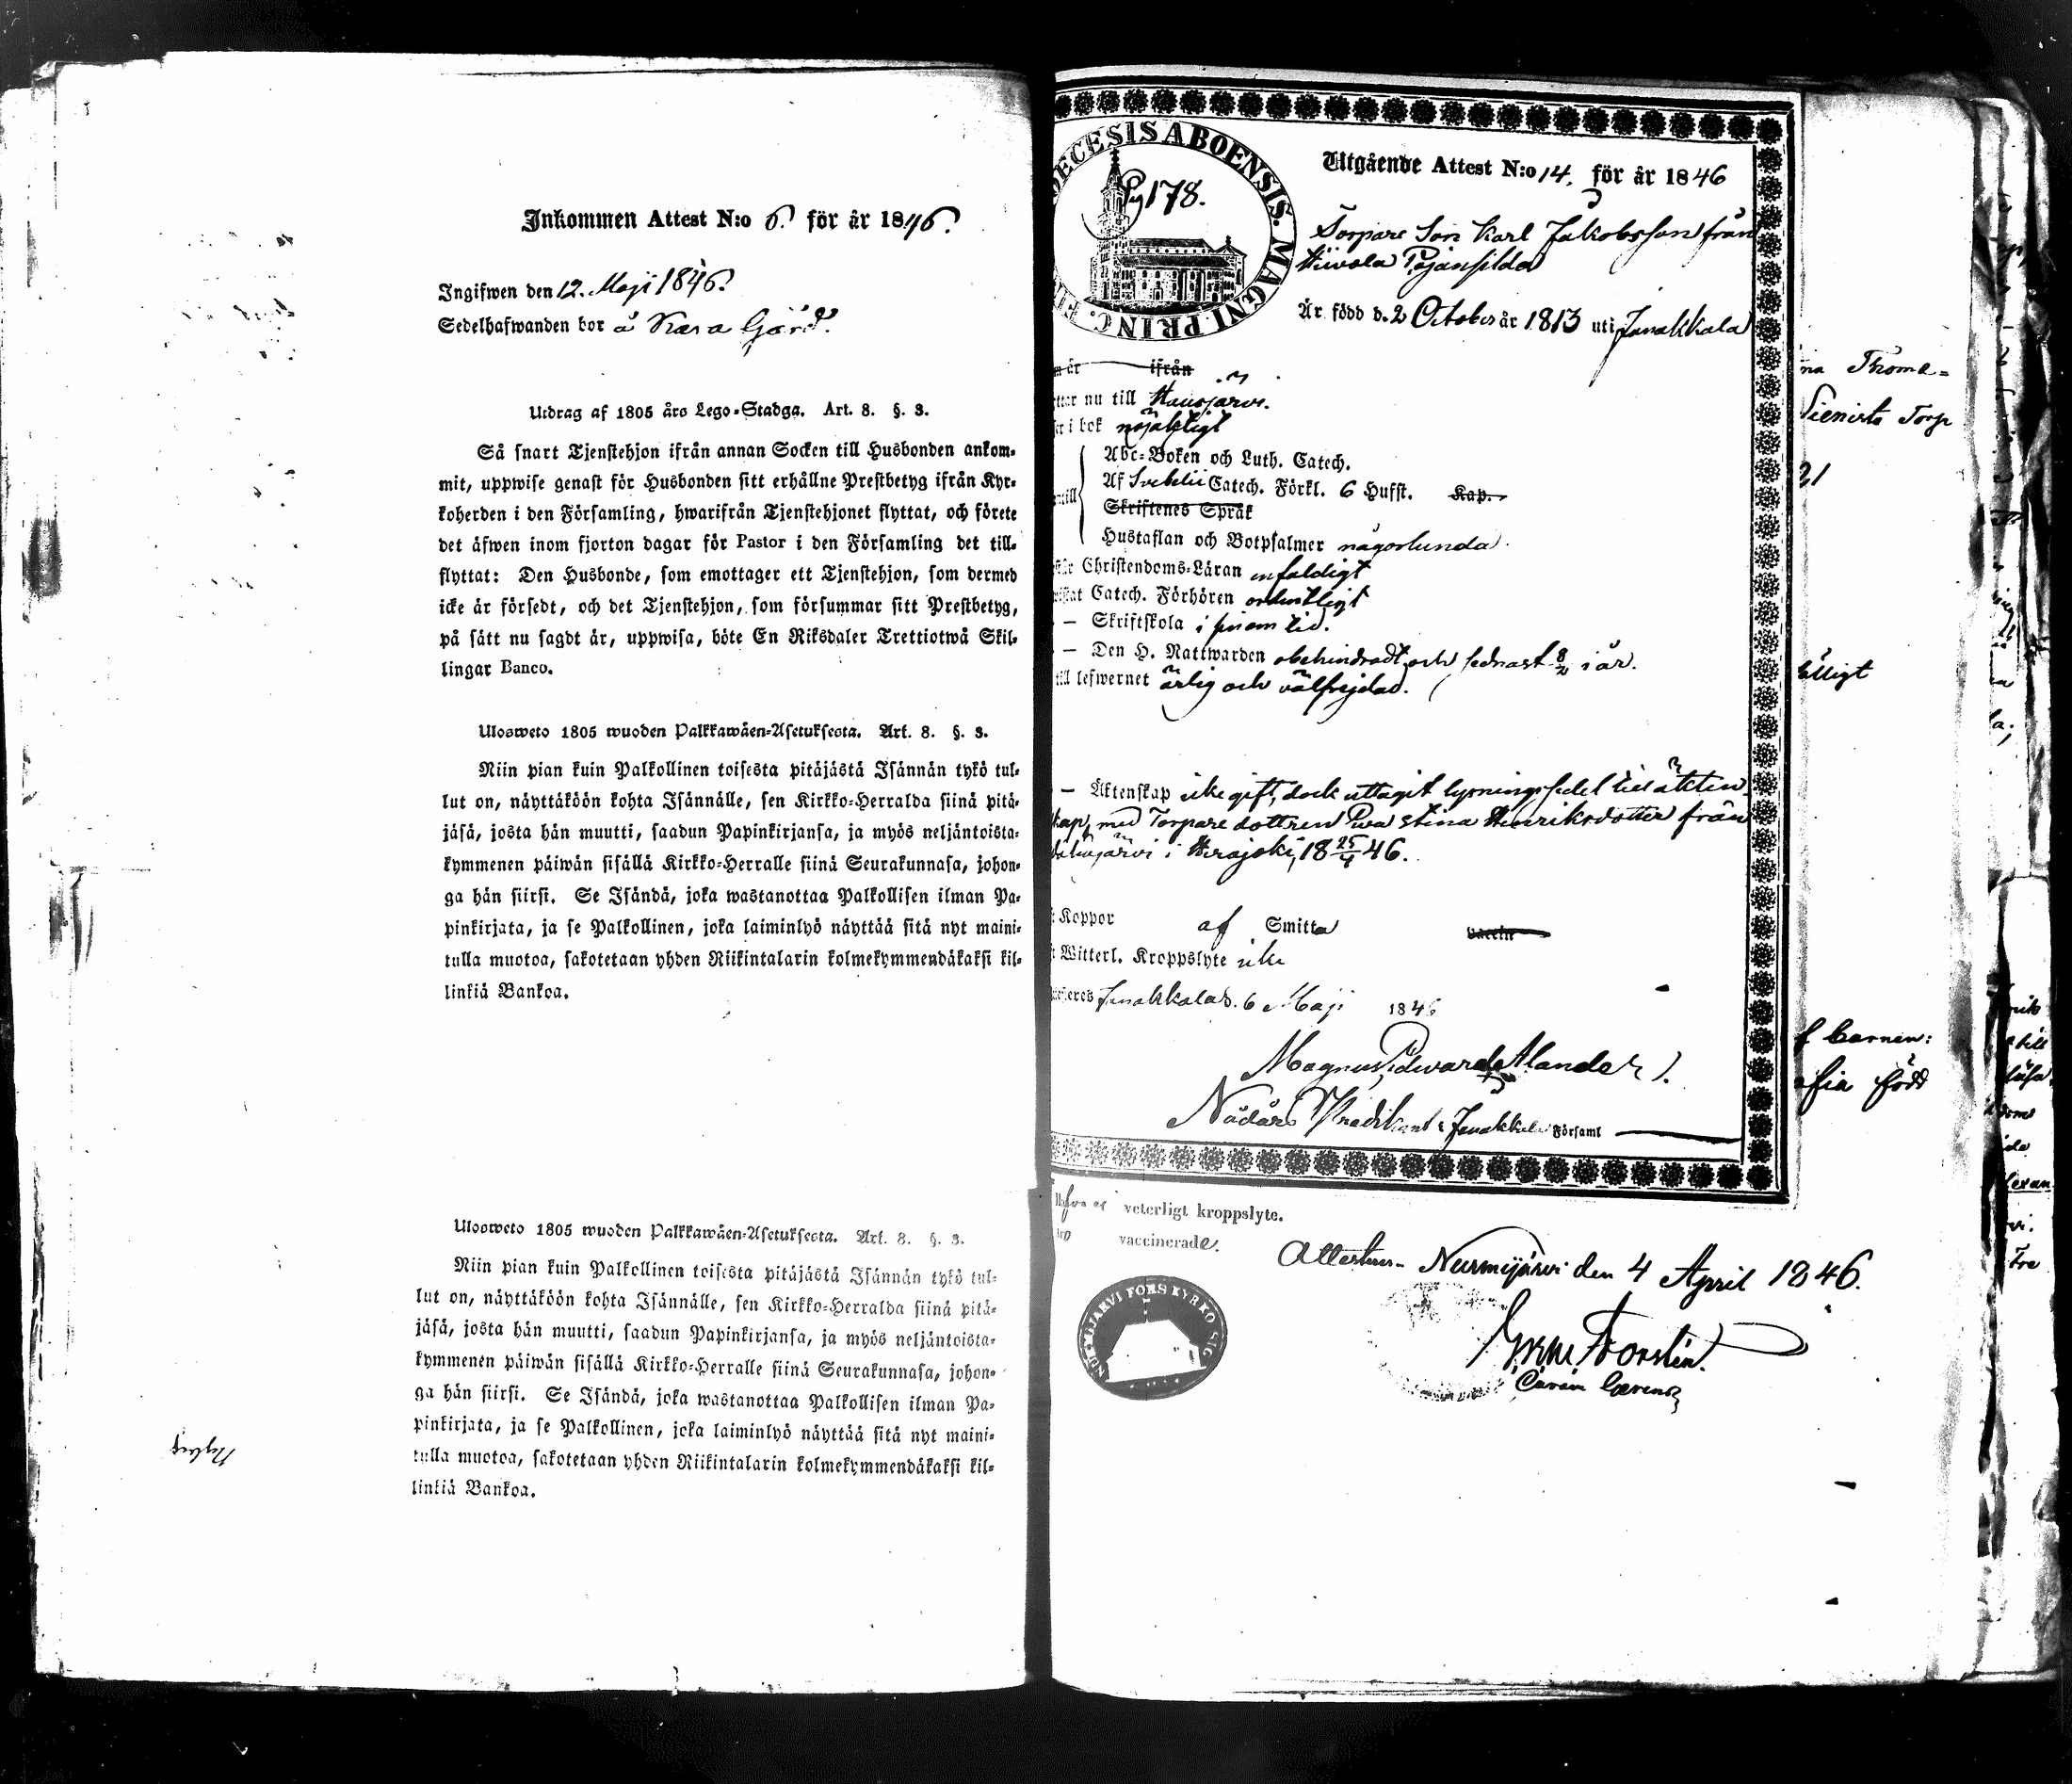 Inkommen Attest N:o 6. för år 1846.
Ingifwen den 12. Maji 1846.
Sedelhafwanden bor å Kara Gård.
Utdrag af 1805 års Lego-Stadga. Art. 8. §. 3.
Så snart Tjenstehjon ifrån annan Socken till Husbonden ankom-
mit, uppwise genast för Husbonden sitt erhållne Prestbetyg ifrån Kyr-
koherden i den Församling, hwarifrån Tjenstehjonet flyttat, och förete
det äfwen inom fjorton dagar för Pastor i den Församling det till-
flyttat: Den Husbonde, som emottager ett Tjenstehjon, som dermed
icke är försedt, och det Tjenstehjon, som försummar sitt Prestbetyg,
på sätt nu sagdt är, uppwisa, böte En Riksdaler Trettiotwå Skil-
lingar Banco.
Ulosweto 1805 wuoden Palkkawäen-Asetuksesta. Art. 8. §. 3.
Niin pian kuin Palkollinen toisesta pitäjästä Isännän tykö tul-
lut on, näyttäköön kohta Isännälle, sen Kirkko-Herralda siinä pitä-
jäsä, josta hän muutti, saadun Papinkirjansa, ja myös neljäntoista-
kymmenen päiwän sisällä Kirkko-Herralle siinä Seurakunnasa, johon-
ga hän siirsi. Se Isändä, joka wastanottaa Palkollisen ilman Pa-
pinkirjata, ja se Palkollinen, joka laiminlyö näyttää sitä nyt maini-
tulla muotoa, sakotetaan yhden Riikintalarin kolmekymmendäkaksi kil-
linkiä Bankoa.
Ulosweto 1805 wuoden Palkkawäen-Asetuksesta. Art. 8. §. 3.
Niin pian kuin Palkollinen toisesta pitäjästä Isännän tykö tul-
lut on, näyttäköön kohta Isännälle, sen Kirkko-Herralda siinä pitä-
jäsä, josta hän muutti, saadun Papinkirjansa, ja myös neljäntoista-
kymmenen päiwän sisällä Kirkko-Herralle siinä Seurakunnasa, johon-
ga hän siirsi. Se Isändä, joka wastanottaa Palkollisen ilman Pa-
pinkirjata, ja se Palkollinen, joka laiminlyö näyttää sitä nyt maini-
tulla muotoa, sakotetaan yhden Riikintalarin kolmekymmendäkaksi kil-
linkiä Bankoa.
ECESIS ABOENSIS. MAGNI PRINC. FI
178.
Utgående Attest N:o 14. för år 1846
Torpare Son Karl Jakobsson från
Är född d. 2 October år 1813 uti Janakkala
år ifrån
ttar nu till Hausjärvi.
er i bok nöjaktigt
Abc-Boken och Luth. Catech.
Af Svebelii Catech. Förkl. 6 Hufst. Kap.
Skriftenes Språk
Hustaflan och Botpsalmer någorlunda.
Christendoms-Läran enfaldigt
Catech. Förhören ordentligt
— Skriftskola i sinom tid.
— Den H. Nattwarden obehindradt, och sednast 8/2 i år.
till lefwernet ärlig och välfrejdad.
— Äktenskap icke gift, dock uttagit lysningssedel till äkten-
skap, med Torpare dottren Eva Stina Henriksdotter från
järvi i Herajoki, 18 25/4 46.
Koppor af Smitta vaccin
Witterl. Kroppslyte icke
Janakkala d. 6 Maji 1846
Magnus Edvard Alander).
Nådårs Predikant i Janakkala Församl
veterligt kroppslyte.
vaccinerade.
Attesteras Nurmijärvi den 4 April 1846.
Forstén.
NURMIJÄRVI FÖRS KYRKO SIG
Thoma-
Torp
21
Barnen:
född